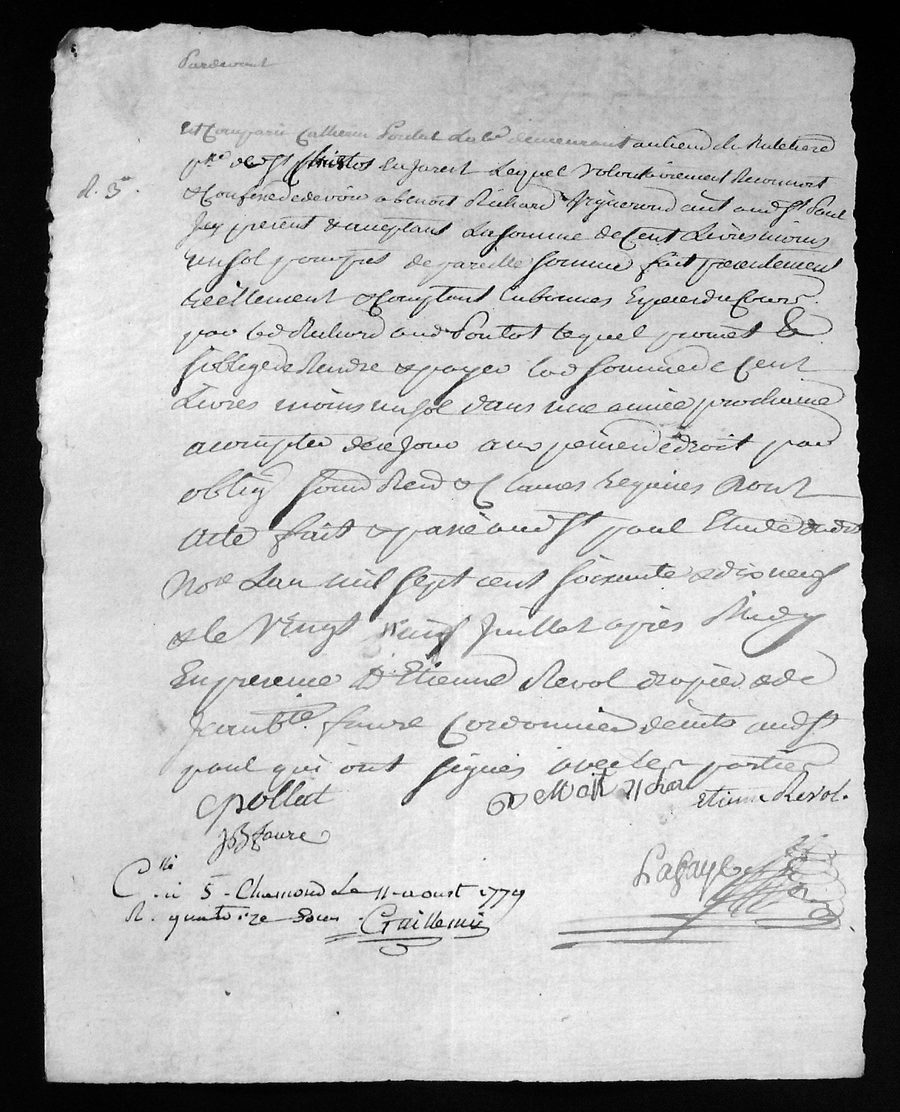 Pardevant
Est Comparu Catherin Poulat Lab.r demeurant au lieu de
p.sse de St Christot En Jarest Lequel volontairement Reconnoit
R. 5s.
& Confesse devoir a benoit Richard vigneron d. audt St Paul
Jay present & acceptant La somme de Cent Livres moins
un sol pour prest de pareille somme fait presentement
reellement & Comptant En Especes du Cours
par led Richard aud Poulat lequel promet &
soblige de Rendre & payer lad somme de Cent
Livres moins un sol dans une année prochaine
a compter de ce Jour aux peines de droit par
oblig soum Ren & Clauses Requises Dont
Acte fait & passé audt St paul Etude dudt
No.re Lan mil Sept cent soixante & dix neuf
& le vingt neuf Juillet après Midy
En presence D Etienne Revol drapier & de
Jean b.te faure Cordonnier dudt St
paul qui ont signés avec les parties
Cpollat
Benoit Richard
Etienne Revol.
JB faure
Lafay
C.llé à S. Chamond Le 11 aoust 1779
R. quatorze sous Guillemin